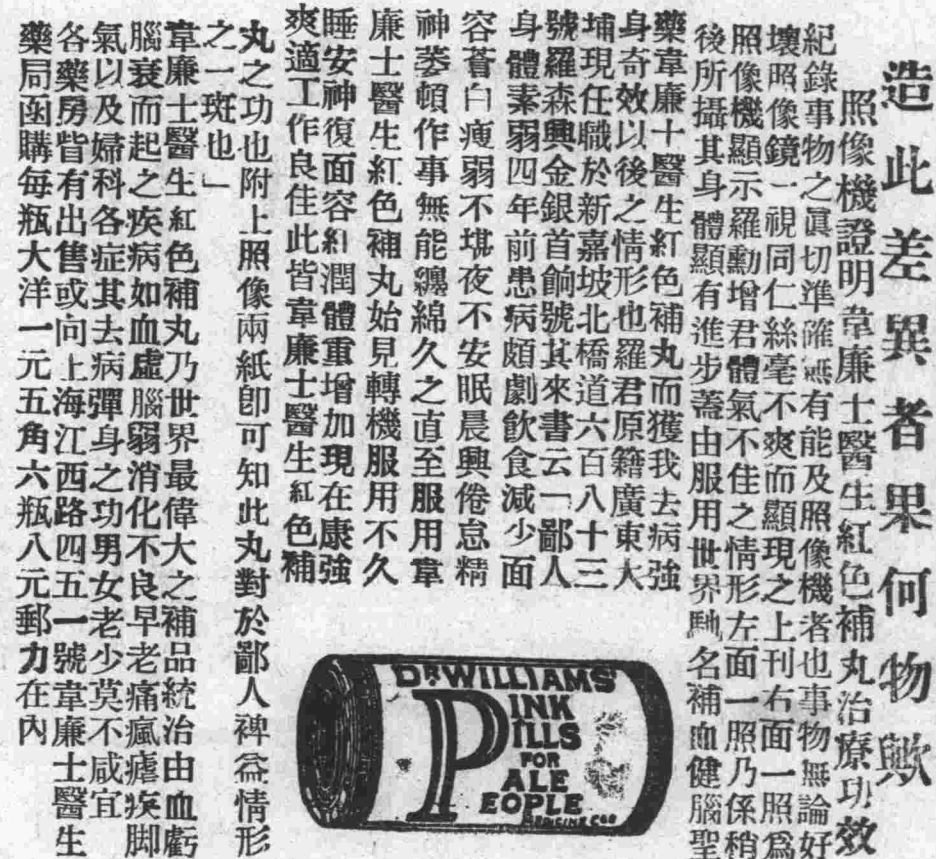 造此差異者果何物歟
照像機證明韋廉士醫生紅色補丸治療功效
紀錄事物之眞切準確無有能及照像機者也事物無論好
壞照像鏡一視同仁絲毫不爽而顯現之上刊右面一照爲
照像機顯示羅勳增君體氣不佳之情形左面一照乃係稍
後所攝其身體顯有進步蓋由服用世界馳名補血健腦聖
藥韋廉士醫生紅色補丸而獲我去病強
身奇效以後之情形也羅君原籍廣東大
埔現任職於新嘉坡北橋道六百八十三
號羅森興金銀首餙號其來書云「鄙人
身體素弱四年前患病頗劇飲食減少面
容蒼白瘦弱不堪夜不安眠晨興倦怠精
神萎頓作事無能纏綿久之直至服用韋
廉士醫生紅色補丸始見轉機服用不久
睡安神復面容紅潤體重增加現在康強
爽適工作良佳此皆韋廉士醫生紅色補
丸之功也附上照像兩紙卽可知此丸對於鄙人裨益情形
之一斑也」
韋廉士醫生紅色補丸乃世界最偉大之補品統治由血虧
腦衰而起之疾病如血虛腦弱消化不良早老痛瘋瘧疾脚
氣以及婦科各症其去病彊身之功男女老少莫不咸宜
各藥房皆有出售或向上海江西路四五一號韋廉士醫生
藥局函購每瓶大洋一元五角六瓶八元郵力在內
DR WILLIAMS'
PINK
PILLS
FOR
PALE
PEOPLE
MEDICINE CO